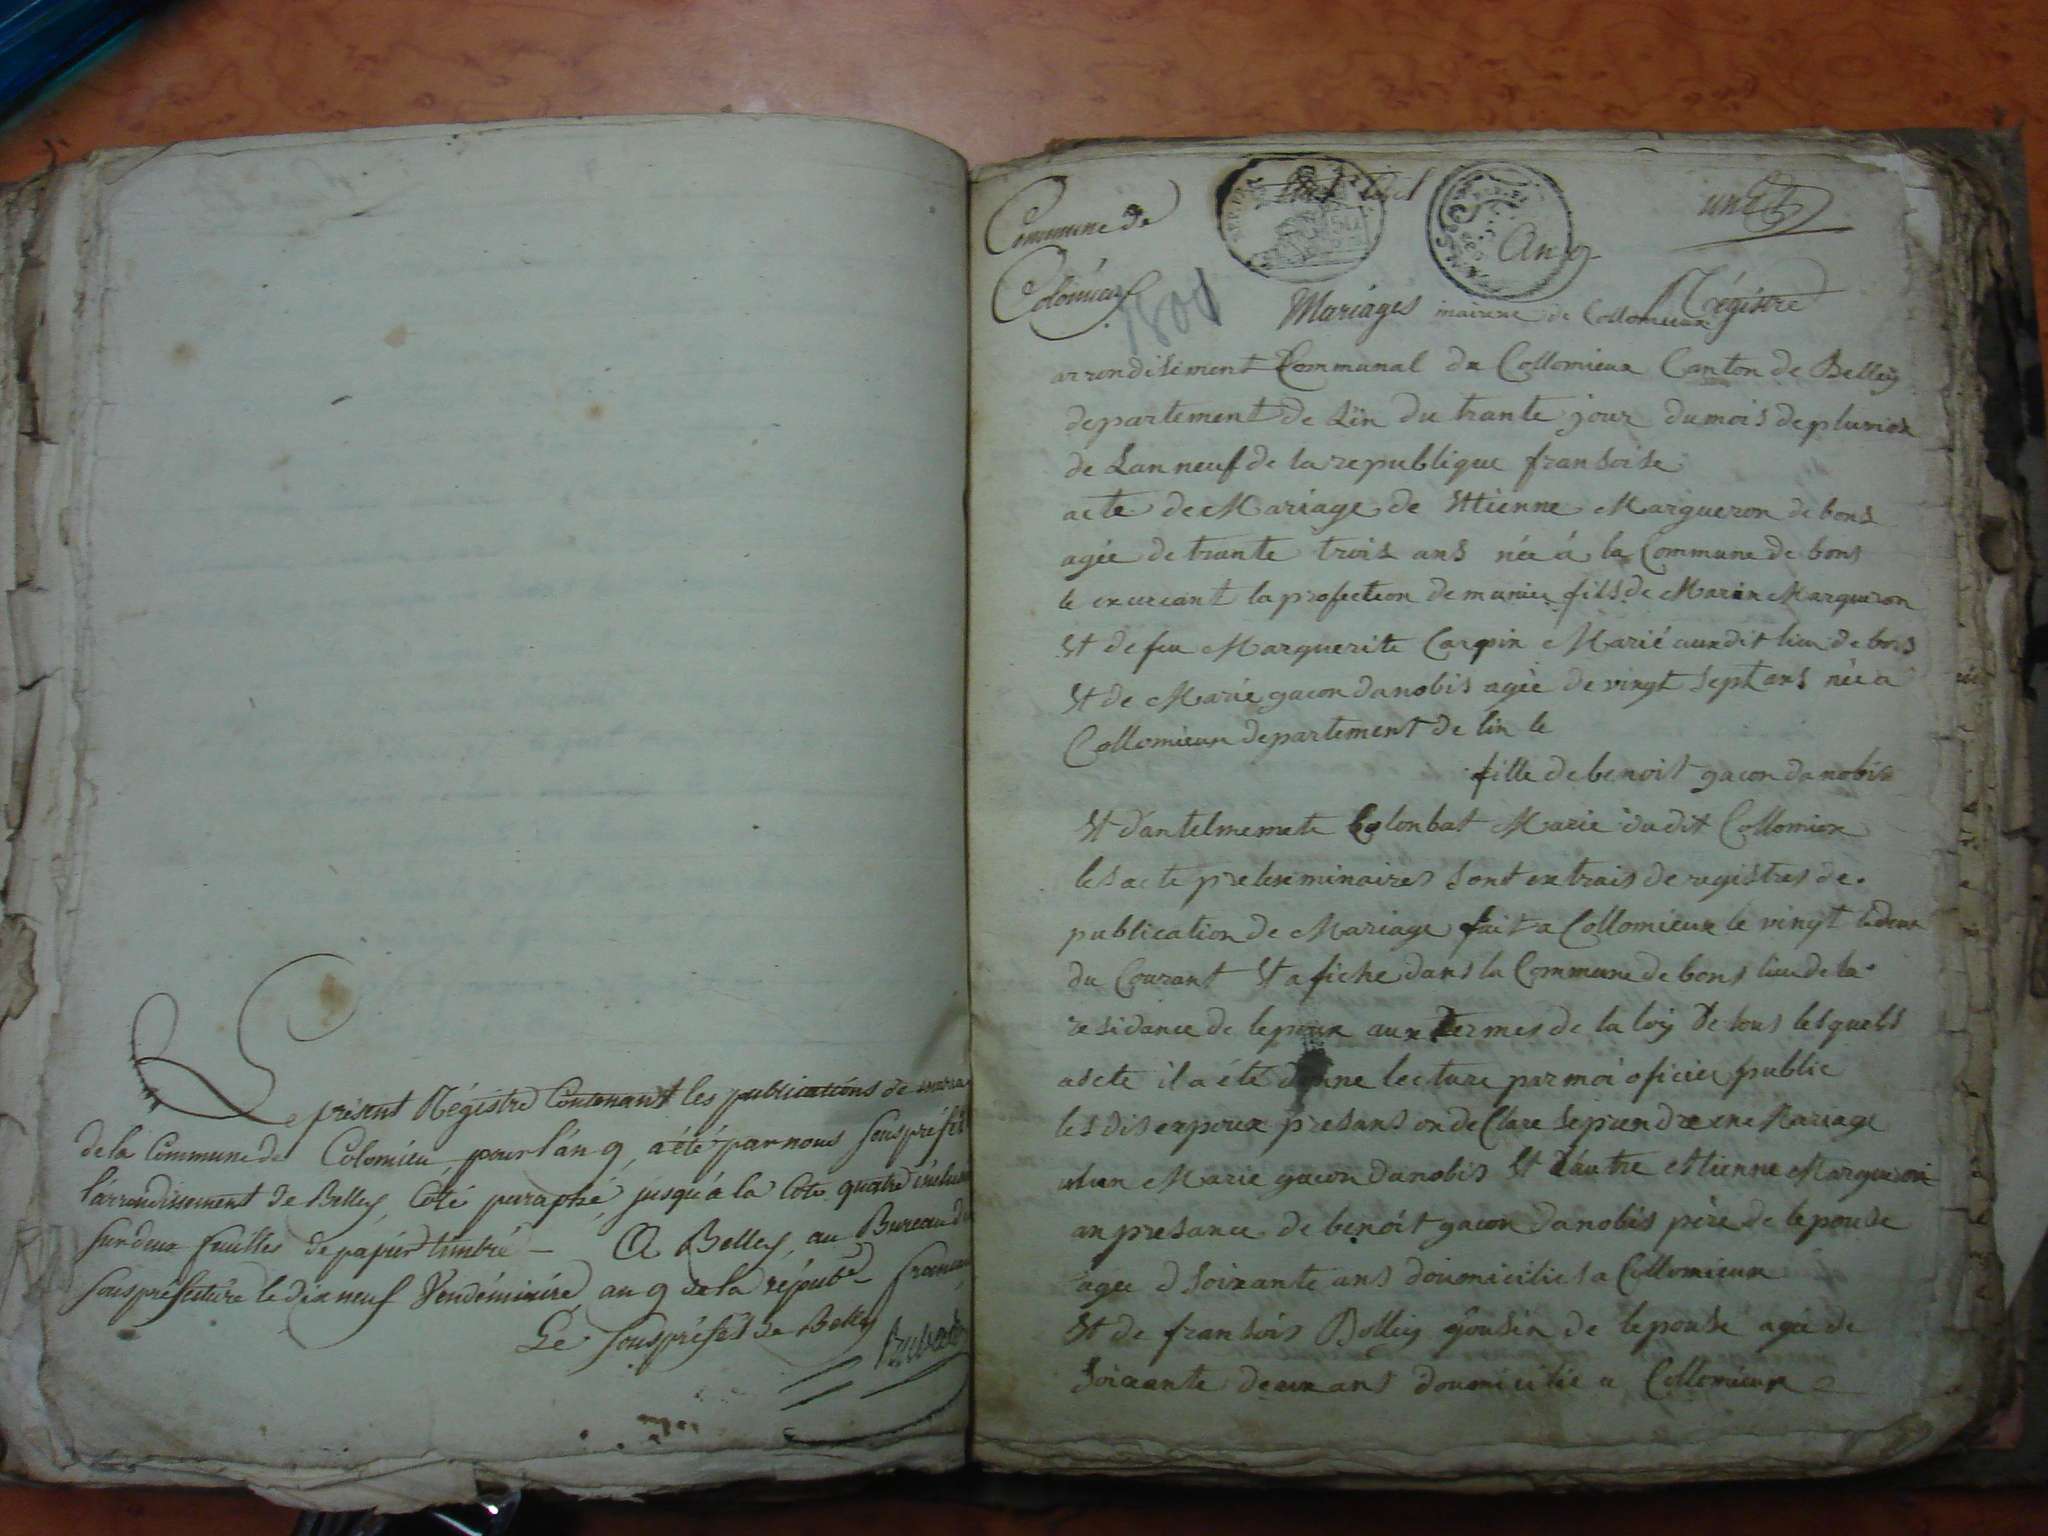 Le présent Régistre Contenant les publications de maria
de la Commune de Colomieu, pour l'an 9, a été par nous souspréfét
l'arrondissement de Belley, coté paraphé, jusqu'à la cote quatre inclus
sur deux fuilles de papier timbré - A Belley, au Bureau de
souspréfecture le dix neuf Vendémiaire, an 9 de la répube francais
Le souspréfet de Belley
Commune de
Colomieux
1801
An 9
un
Régistre
Mariages mairie de Collomieux
arrondisement Communal du Collomieux Canton de Belley
departement de Lïn du trante jour du mois de pluviox
de Lan neuf de la republique fransoise
acte de Mariage de Ettienne Margueron de bons
agée de trante trois ans née á la Commune de bons
le exercant la profection de munier fils de Marin Margueron
Et de feu Marguerite Carpin Marié audit lieu de bons
Et de Marie gacon danobis agée de vingt sept ans née a
Collomieux departement de lin le
fille de benoit gacon danobis
Et dantelmemete Colonbat Marié dudit Collomieu
les acte preleminaires sont extrais de registres de
publication de Mariage fait a Collomieux le vingt
du Courant Et afiche dans la Commune de bons lieu de la
residance de lepoux aux termes de la loy de tous lesquels
acte il a été donne lecture par moi oficier public
les dis expoux presans on de Clare se prendre en Mariage
lun Marie gacon danobis Et dautre Etienne Margueron
an presance de benoit gacon danobis père de lepouse
agee d soixante ans doumicilies a Collomieux
Et de fransois Bolley Cousin de lepouse agée de
soixante deux ans doumicilie a Collomieux